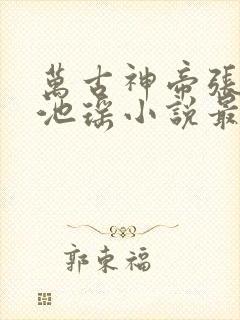 萬古神帝張
池瑤小說最
郭東福